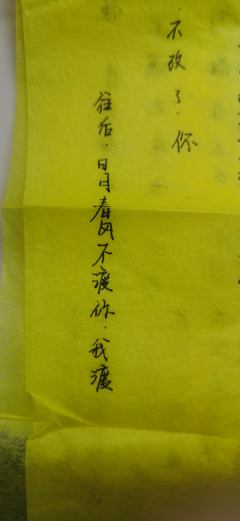 不改了.你
往后.日日春风不渡你.我渡